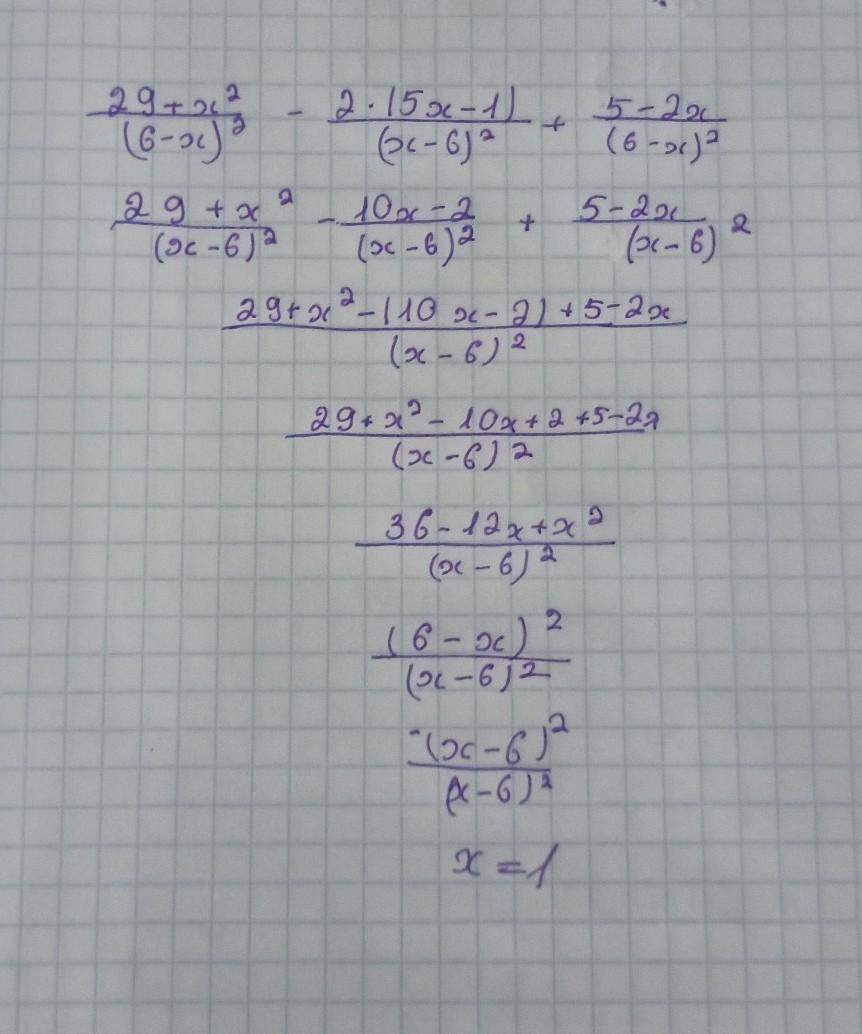 (29+x²)/(6-x)² - (2·(5x-1))/(x-6)² + (5-2x)/(6-x)²
(29+x²)/(x-6)² - (10x-2)/(x-6)² + (5-2x)/(x-6)²
(29+x²-(10x-2)+5-2x)/(x-6)²
(29+x²-10x+2+5-2x)/(x-6)²
(36-12x+x²)/(x-6)²
(6-x)²/(x-6)²
-(x-6)²/(x-6)²
x=1